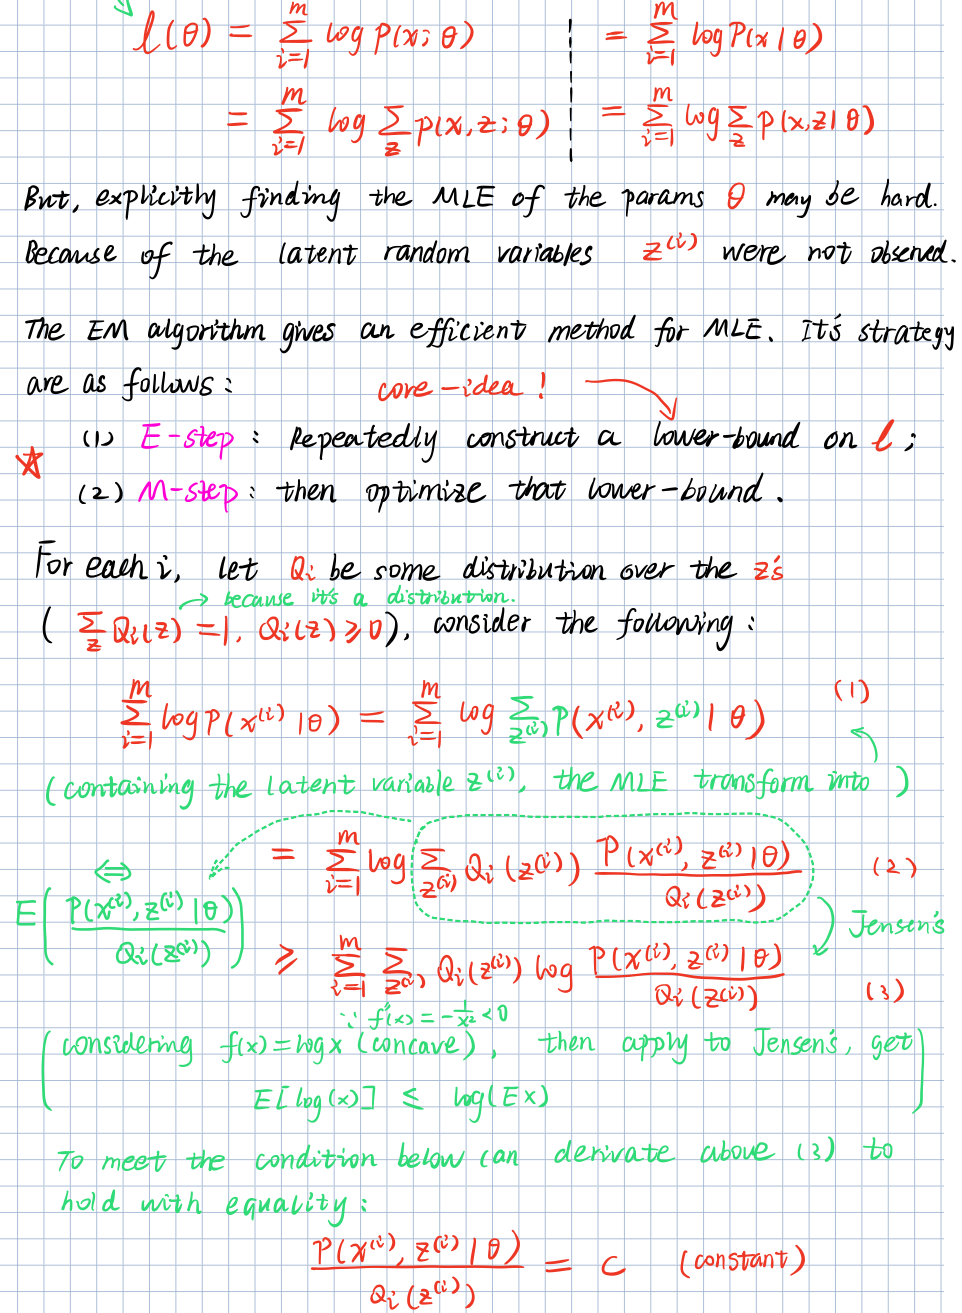 ℓ(θ) = Σ_{i=1}^{m} log P(x; θ) = Σ_{i=1}^{m} log P(x | θ)
= Σ_{i=1}^{m} log Σ_z p(x, z; θ) = Σ_{i=1}^{m} log Σ_z p(x, z | θ)
But, explicitly finding the MLE of the params θ may be hard.
Because of the latent random variables z^{(i)} were not observed.
The EM algorithm gives an efficient method for MLE. It's strategy
are as follows: core-idea!
(1) E-step: Repeatedly construct a lower-bound on ℓ;
(2) M-step: then optimize that lower-bound.
For each i, let Q_i be some distribution over the z's
because it's a distribution.
( Σ_z Q_i(z) = 1, Q_i(z) ≥ 0 ), consider the following:
Σ_{i=1}^{m} log P(x^{(i)} | θ) = Σ_{i=1}^{m} log Σ_{z^{(i)}} P(x^{(i)}, z^{(i)} | θ) (1)
(containing the latent variable z^{(i)}, the MLE transform into )
= Σ_{i=1}^{m} log Σ_{z^{(i)}} Q_i(z^{(i)}) P(x^{(i)}, z^{(i)} | θ) / Q_i(z^{(i)}) (2)
⇔
E( P(x^{(i)}, z^{(i)} | θ) / Q_i(z^{(i)}) )
Jensen's
≥ Σ_{i=1}^{m} Σ_{z^{(i)}} Q_i(z^{(i)}) log P(x^{(i)}, z^{(i)} | θ) / Q_i(z^{(i)}) (3)
∵ f''(x) = -1/x² < 0
(considering f(x) = log x (concave), then apply to Jensen's, get
E[log(x)] ≤ log(EX) )
To meet the condition below can derivate above (3) to
hold with equality:
P(x^{(i)}, z^{(i)} | θ) / Q_i(z^{(i)}) = C (constant)